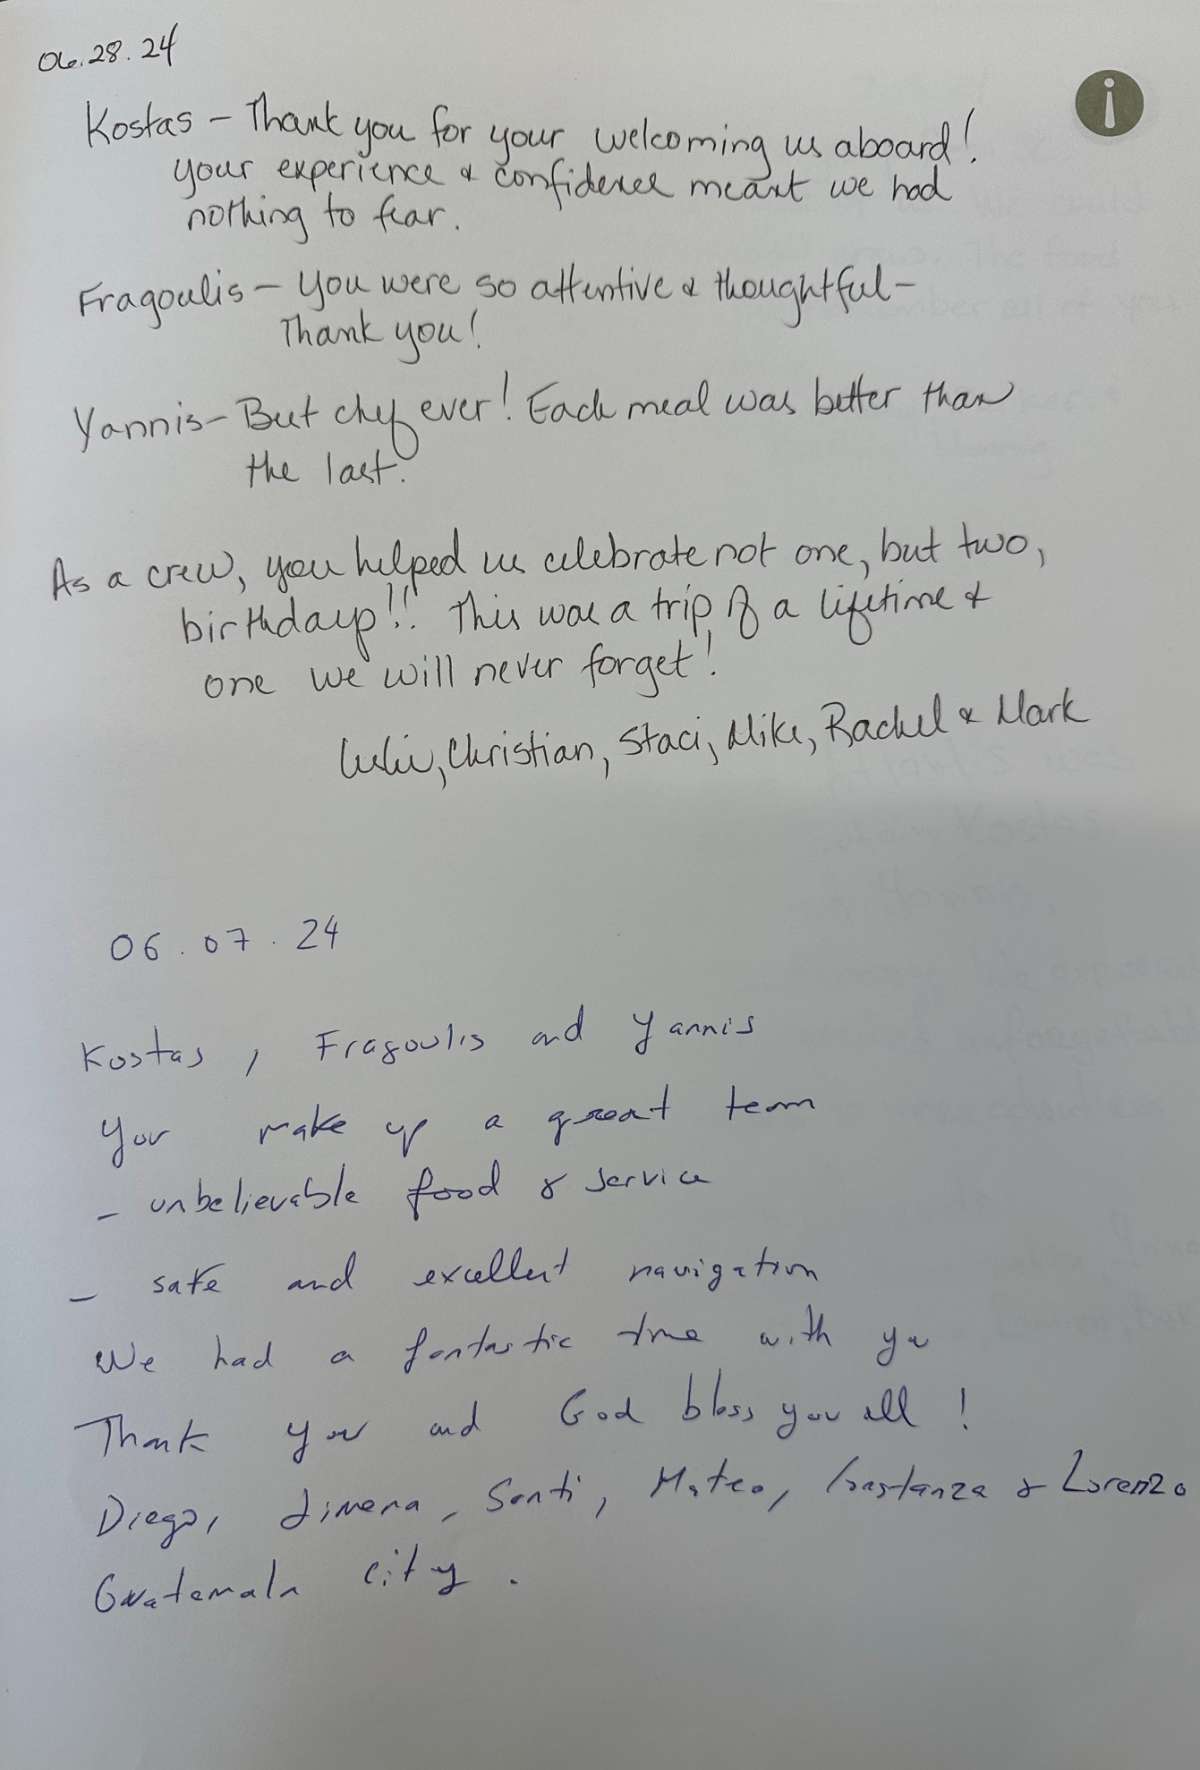 06.28.24
Kostas - Thank you for your welcoming us aboard!
your experience & confidence meant we had
nothing to fear.
Fragoulis - You were so attentive & thoughtful -
Thank you!
Yannis - Best chef ever! Each meal was better than
the last.
As a crew, you helped us celebrate not one, but two,
birthdays!! This was a trip of a lifetime &
one we will never forget!
Leslie, Christian, Staci, Mike, Rachel & Mark
06.07.24
Kostas, Fragoulis and Yannis
You make up a great team
- unbelievable food & service
- safe and excellent navigation
We had a fantastic time with you
Thank you and God bless you all!
Diego, Jimena, Santi, Mateo, Constanza & Lorenzo
Guatemala city.